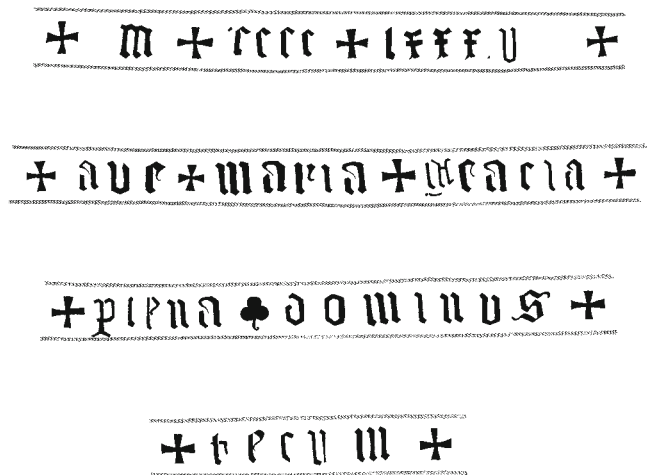 ✠ m ✠ cccc ✠ lxxx.v ✠
✠ ave ✠ maria ✠ gracia ✠
✠ plena ♣ dominus ✠
✠ tecum ✠